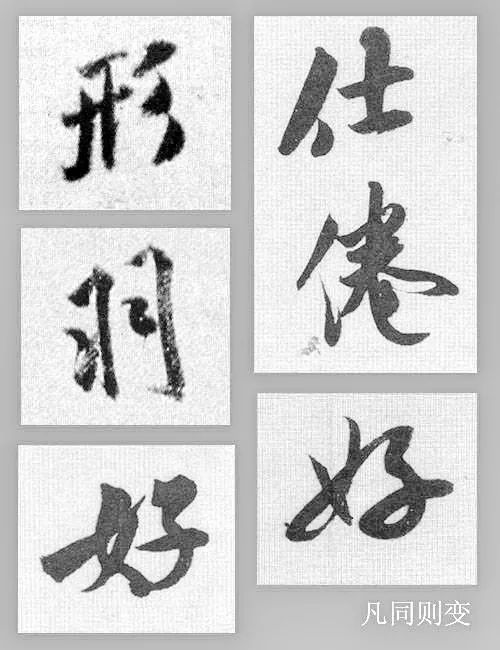 形
羽
好
仕
倦
好
凡同则变